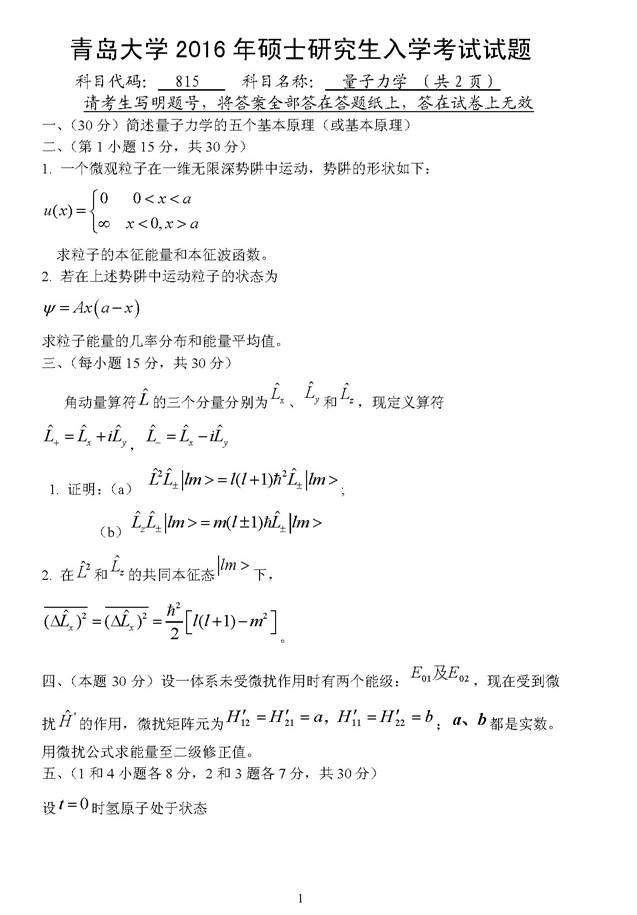 青岛大学 2016 年硕士研究生入学考试试题
科目代码： 815 科目名称： 量子力学 （共 2 页）
请考生写明题号，将答案全部答在答题纸上，答在试卷上无效
一、（30 分）简述量子力学的五个基本原理（或基本原理）
二、（第 1 小题 15 分，共 30 分）
1. 一个微观粒子在一维无限深势阱中运动，势阱的形状如下：
u(x) = { 0 0 < x < a
∞ x < 0, x > a
求粒子的本征能量和本征波函数。
2. 若在上述势阱中运动粒子的状态为
ψ = Ax(a − x)
求粒子能量的几率分布和能量平均值。
三、（每小题 15 分，共 30 分）
角动量算符 L̂ 的三个分量分别为 L̂ₓ 、 L̂_y 和 L̂_z ，现定义算符
L̂₊ = L̂ₓ + iL̂_y ， L̂₋ = L̂ₓ − iL̂_y
1. 证明：（a） L̂²L̂± |lm> = l(l+1)ħ²L̂± |lm> ;
（b） L̂_zL̂± |lm> = m(l±1)ħL̂± |lm>
2. 在 L̂² 和 L̂_z 的共同本征态 |lm> 下，
(ΔL̂ₓ)² = (ΔL̂ₓ)² = ħ²/2 [l(l+1) − m²] 。
四、（本题 30 分）设一体系未受微扰作用时有两个能级： E₀₁及E₀₂ ，现在受到微
扰 Ĥ' 的作用，微扰矩阵元为 H′₁₂ = H′₂₁ = a, H′₁₁ = H′₂₂ = b ； a、b 都是实数。
用微扰公式求能量至二级修正值。
五、（1 和 4 小题各 8 分，2 和 3 题各 7 分，共 30 分）
设 t = 0 时氢原子处于状态
1